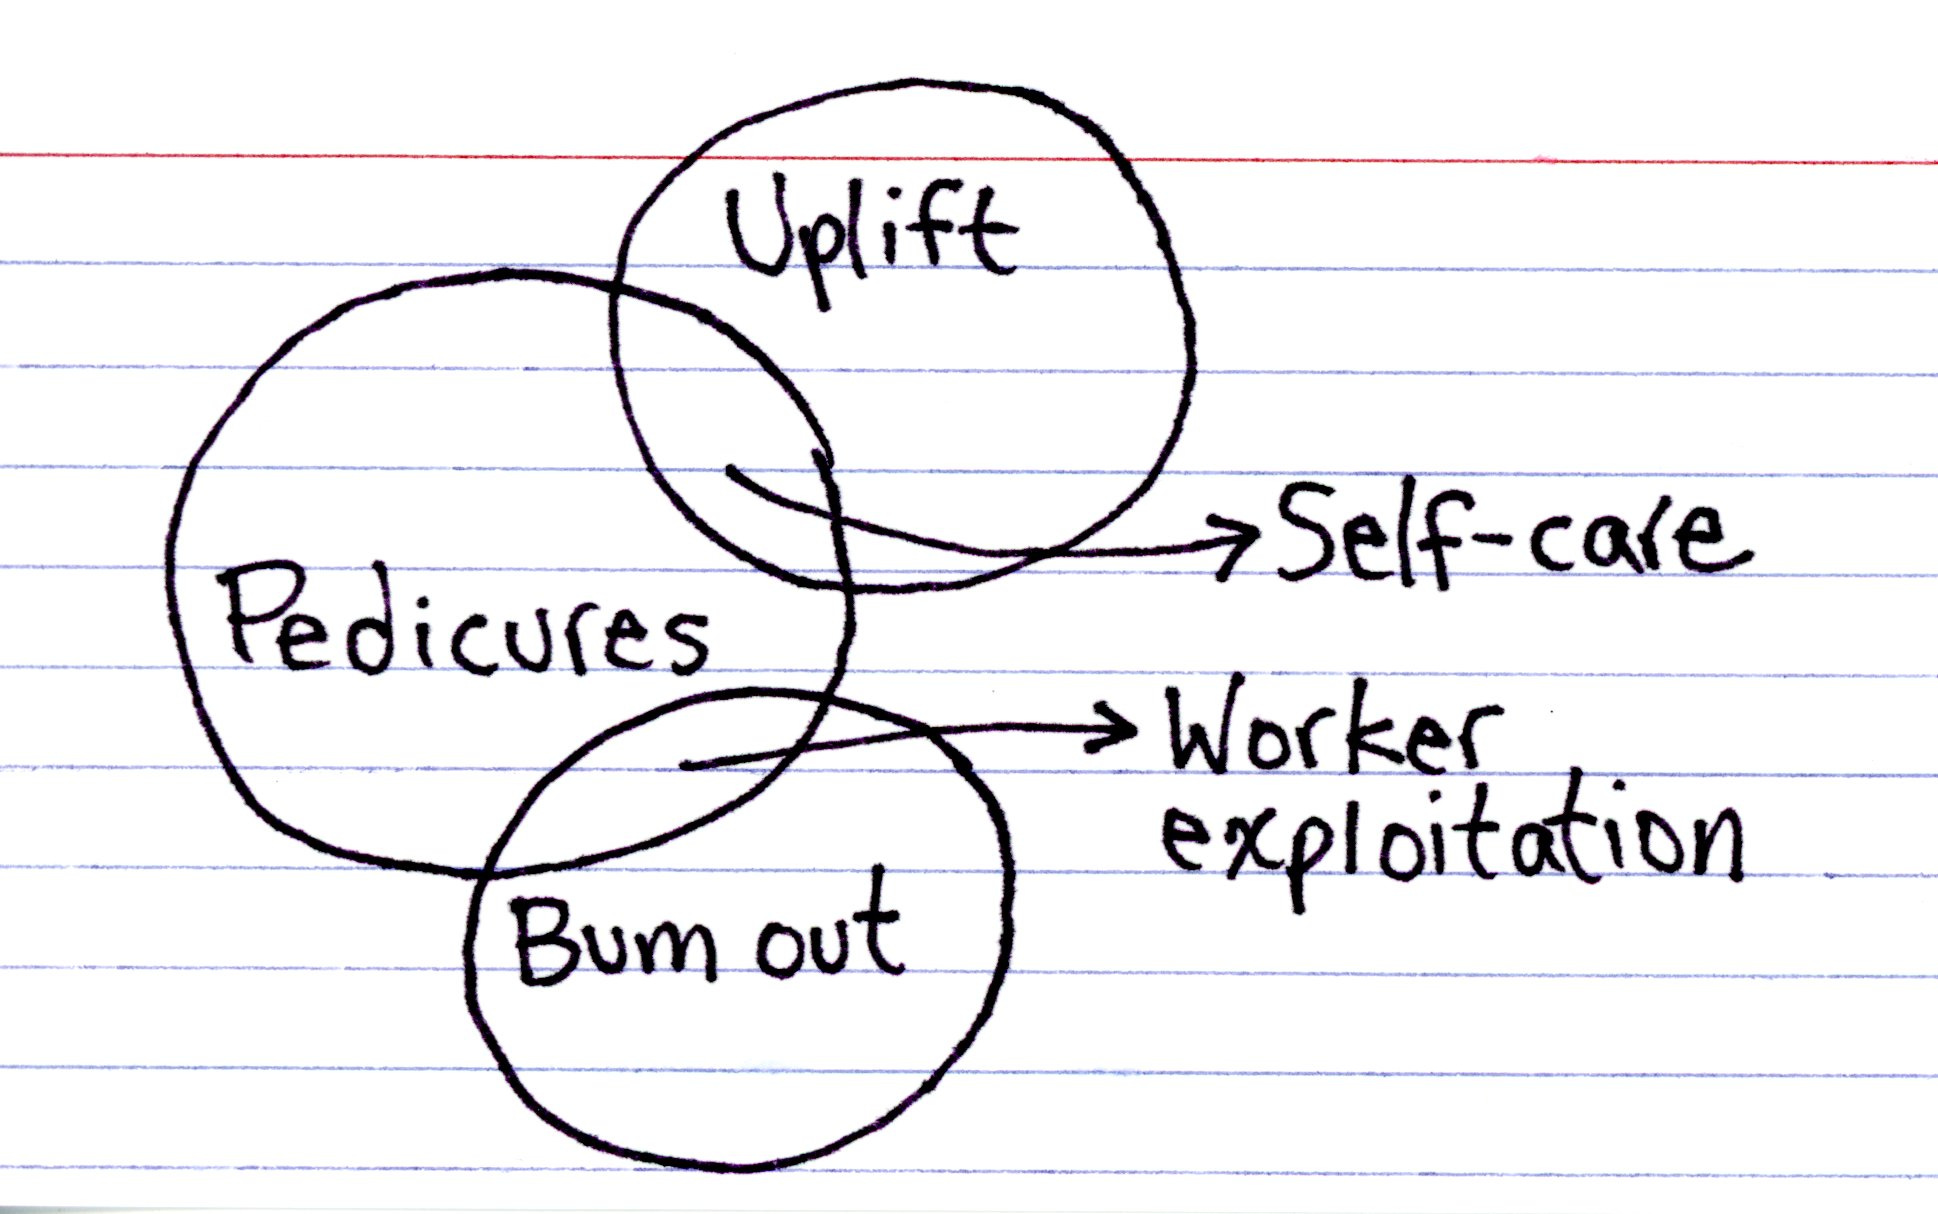 Uplift
Self-care
Pedicures
Worker
exploitation
Bum out